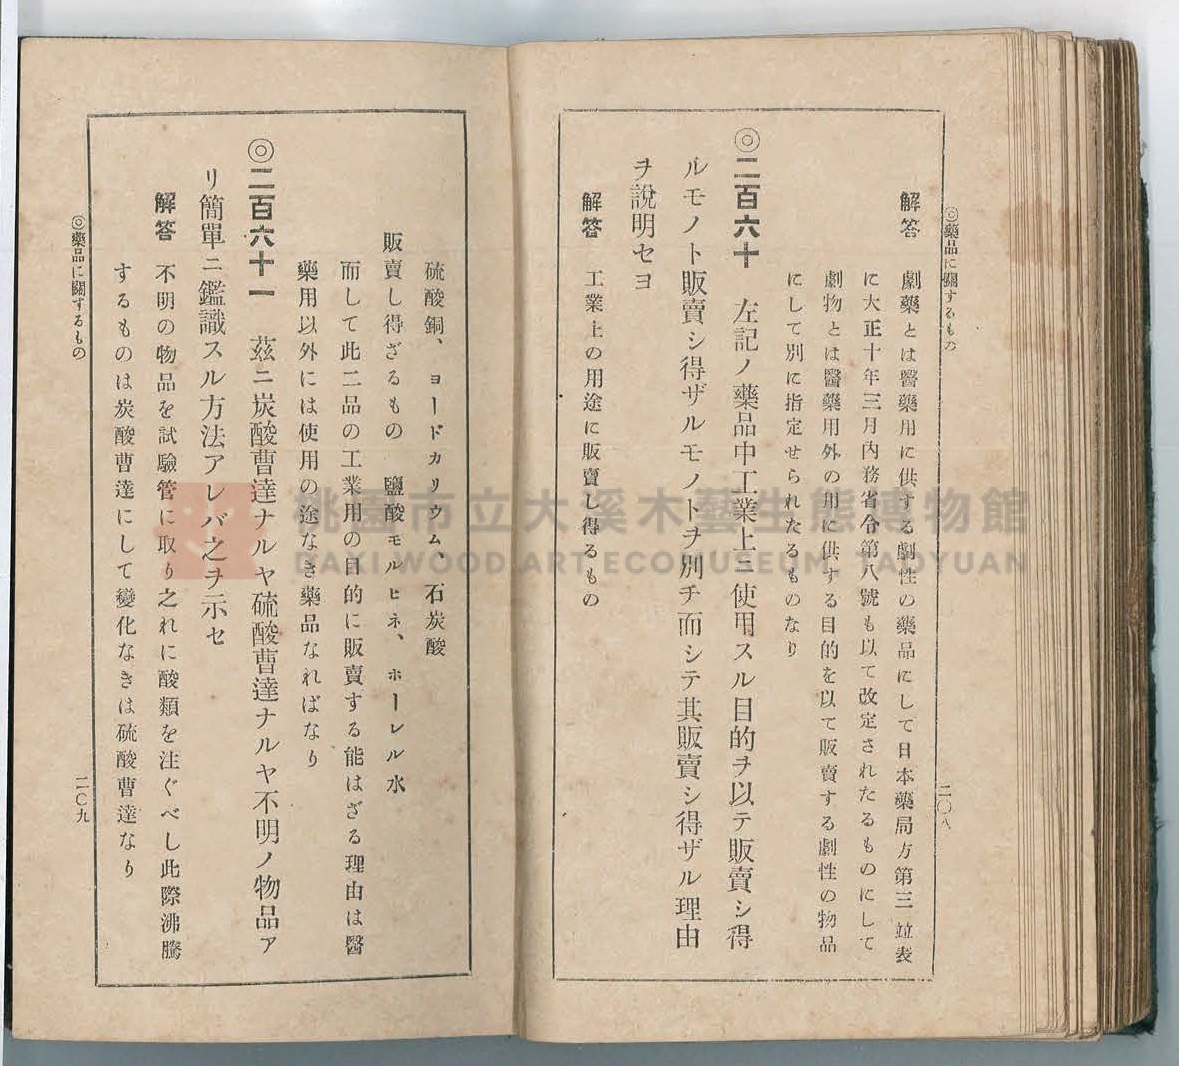 ◎藥品に關するもの
二〇八
解答 劇藥とは醫藥用に供する劇性の藥品にして日本藥局方第三竝表
に大正十年三月內務省令第八號も以て改定されたるものにして
劇物とは醫藥用外の用に供する目的を以て販賣する劇性の物品
にして別に指定せられたるものなり
◎二百六十 左記ノ藥品中工業上ニ使用スル目的ヲ以テ販賣シ得
ルモノト販賣シ得ザルモノトヲ別チ而シテ其販賣シ得ザル理由
ヲ說明セヨ
解答 工業上の用途に販賣し得るもの
硫酸銅、ヨードカリウム、石炭酸
販賣し得ざるもの 鹽酸モルヒネ、ホーレル水
而して此二品の工業用の目的に販賣する能はざる理由は醫
藥用以外には使用の途なき藥品なればなり
◎二百六十一 茲ニ炭酸曹達ナルヤ硫酸曹達ナルヤ不明ノ物品ア
リ簡單ニ鑑識スル方法アレバ之ヲ示セ
解答 不明の物品を試驗管に取り之れに酸類を注ぐべし此際沸騰
するものは炭酸曹達にして變化なきは硫酸曹達なり
◎藥品に關するもの
二〇九
桃園市立大溪木藝生態博物館
DAXI WOOD ART ECOMUSEUM, TAOYUAN